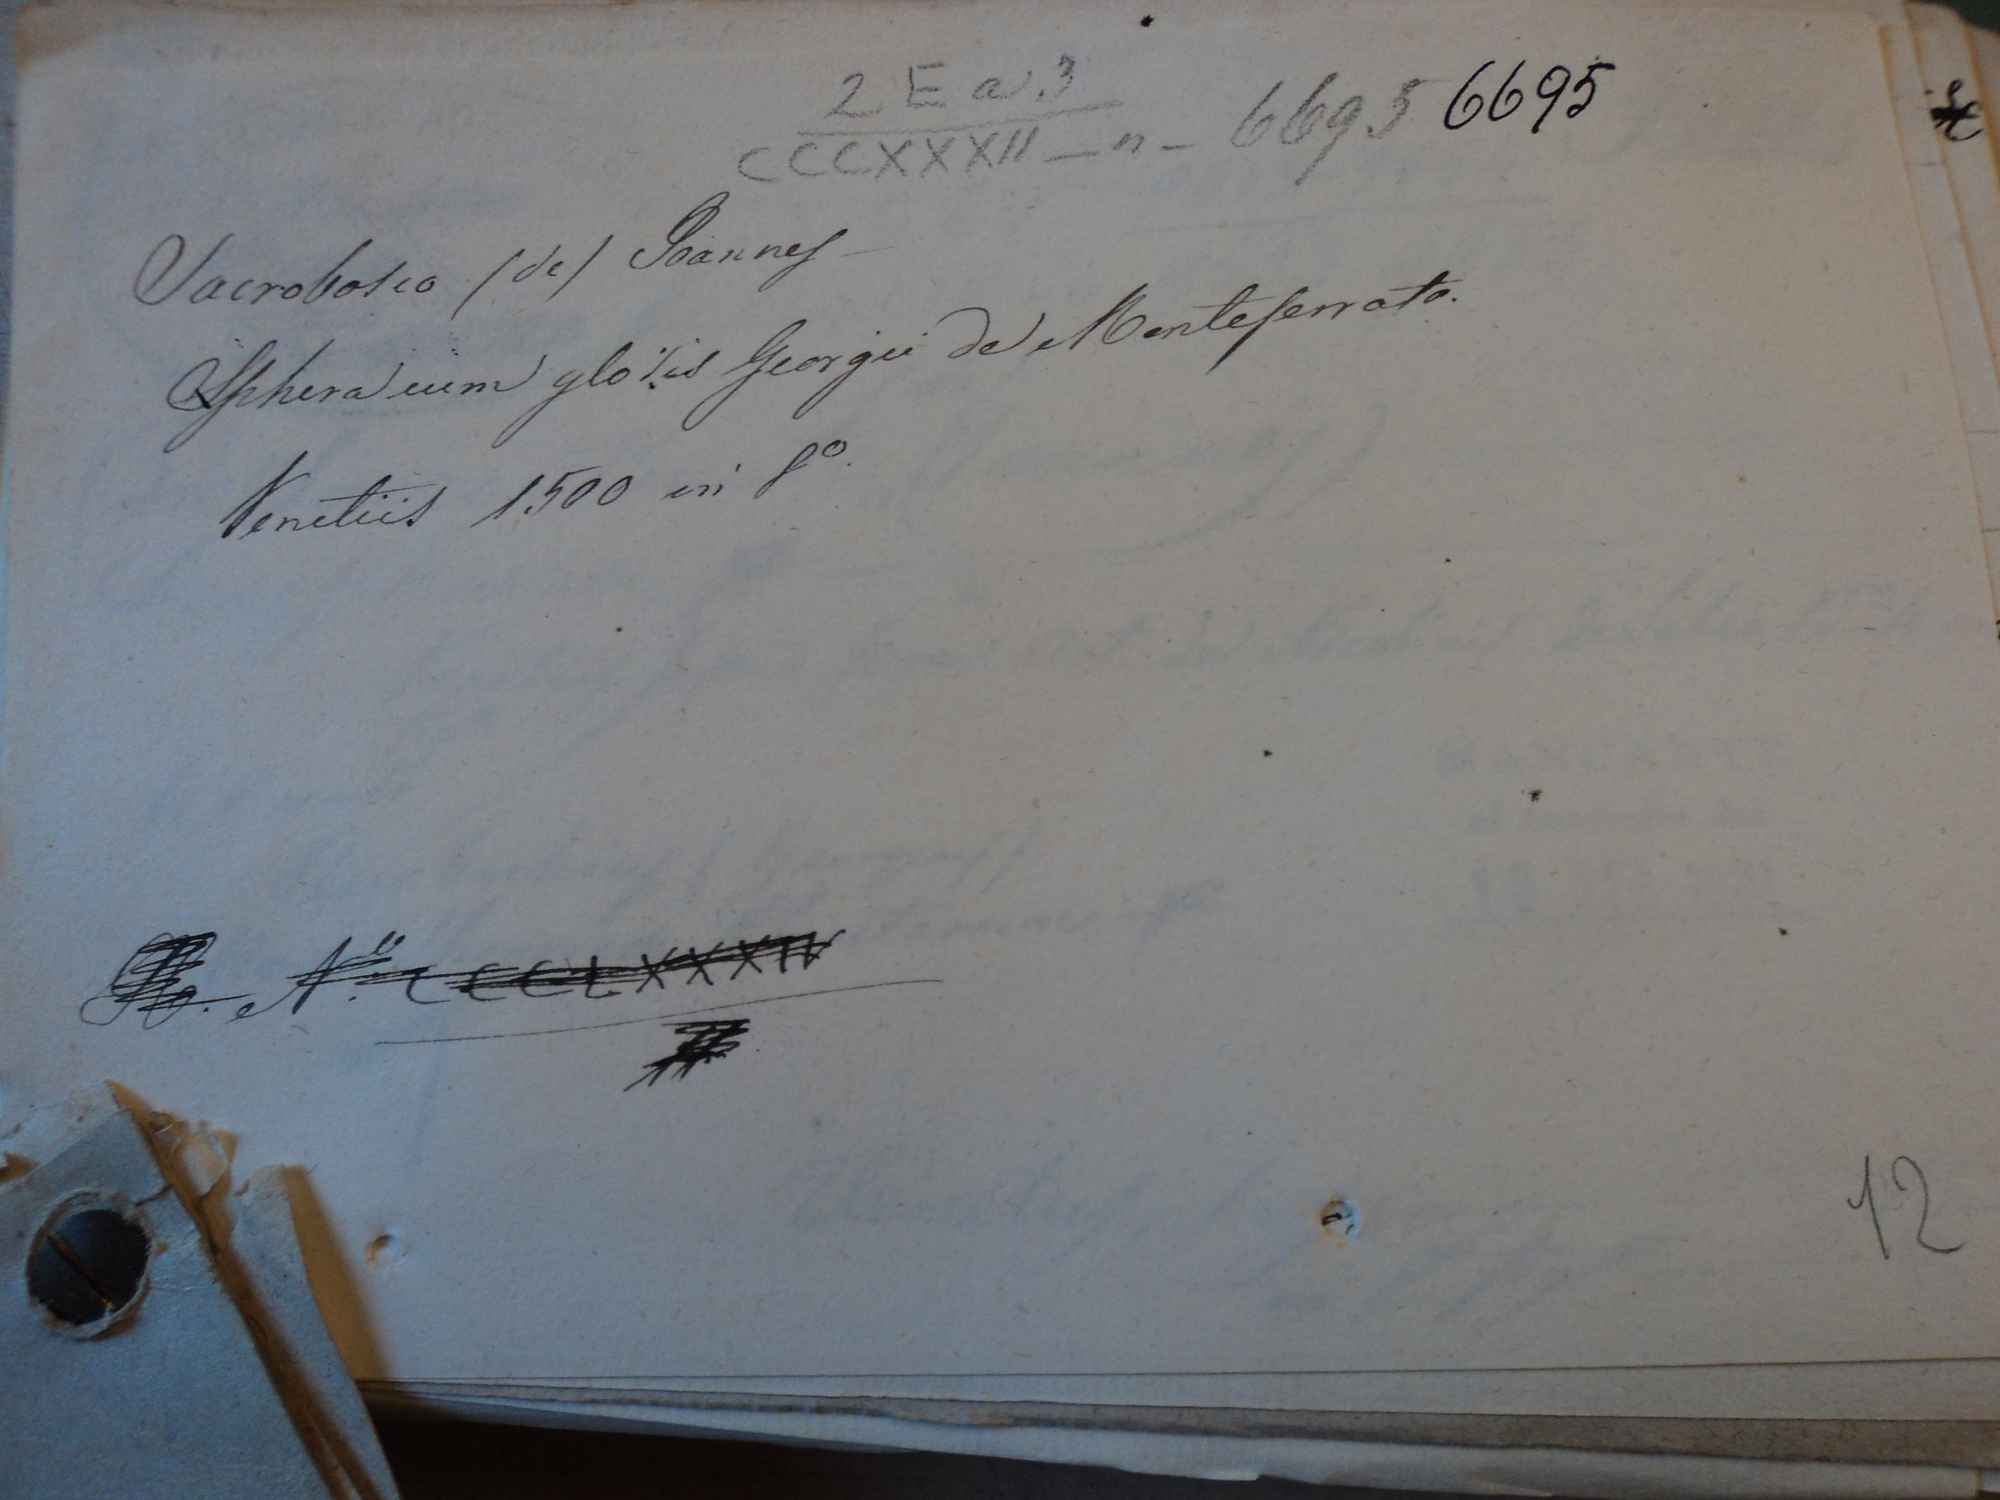 2 E a 3
CCCXXXII — n - 6695 6695
Sacrobosco (de) Joannes
Sphera cum glosis Georgii de Monteferrato.
Venetiis 1500 in 8º.
N.º CCCLXXXIV
12